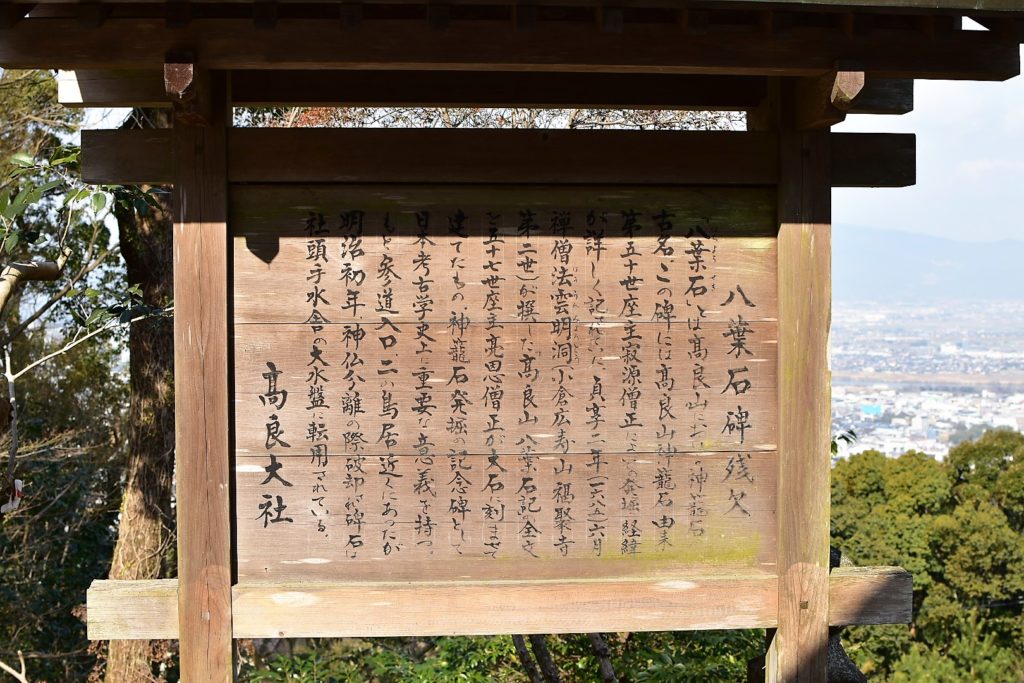 八葉石碑残欠
「八葉石」とは髙良山における神籠石
古名 この碑には髙良山神籠石由来
第五十世座主寂源僧正による発掘経緯
が詳しく記されていた 貞享二年(一六八五)六月
禅僧法雲明洞(小倉広寿山福聚寺
第二世)が撰した「髙良山八葉石記」全文
を五十七世座主亮恩僧正が大石に刻ませて
建てたもの、神籠石発掘の記念碑として
日本考古学史上に重要な意義を持つ
もと参道入口、二の鳥居近くにあったが
明治初年神仏分離の際破却され碑石は
社頭手水舎の大水盤に転用されている。
髙良大社